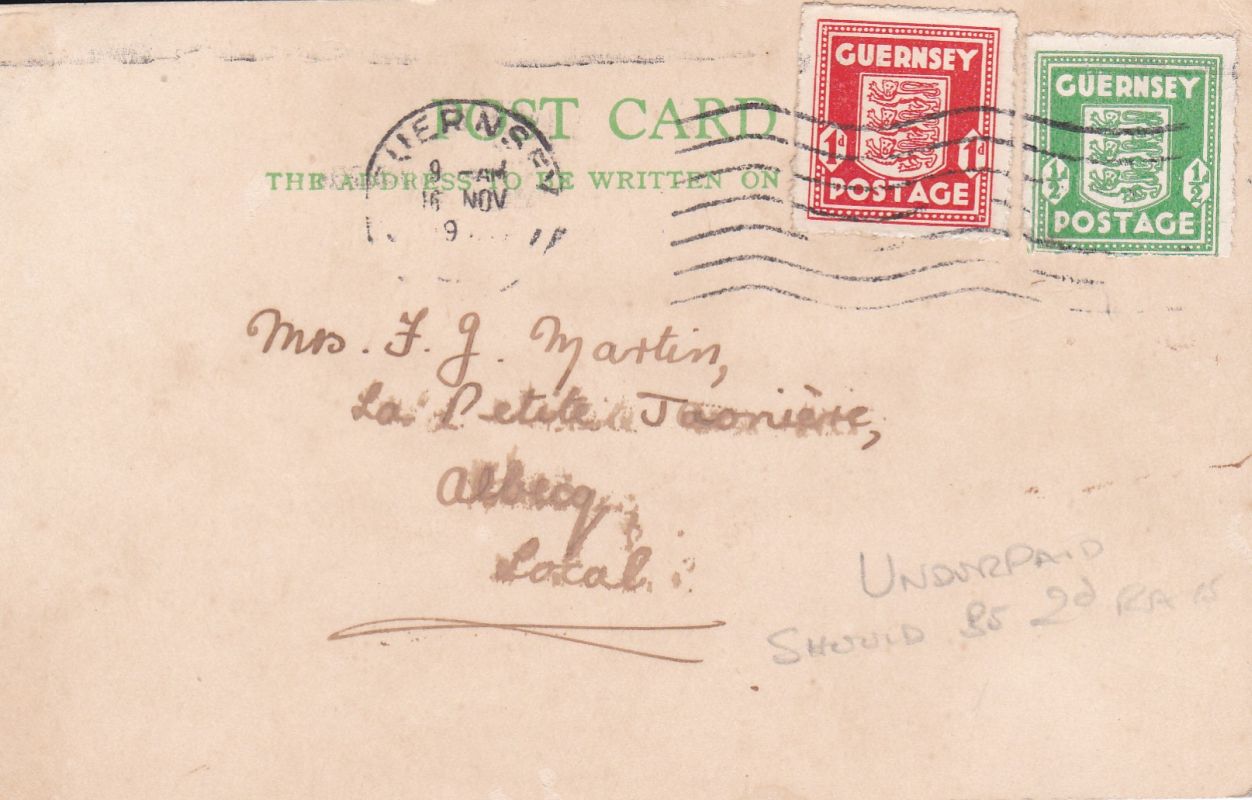 POST CARD
THE ADDRESS TO BE WRITTEN ON
GUERNSEY
9 - AM
16 NOV
9
GUERNSEY
1d 1d
POSTAGE
GUERNSEY
1/2 1/2
POSTAGE
Mrs. F. J. Martin,
La Petite Jaonière,
Albecq,
Local.
UNDERPAID
SHOULD BE 2d RATE